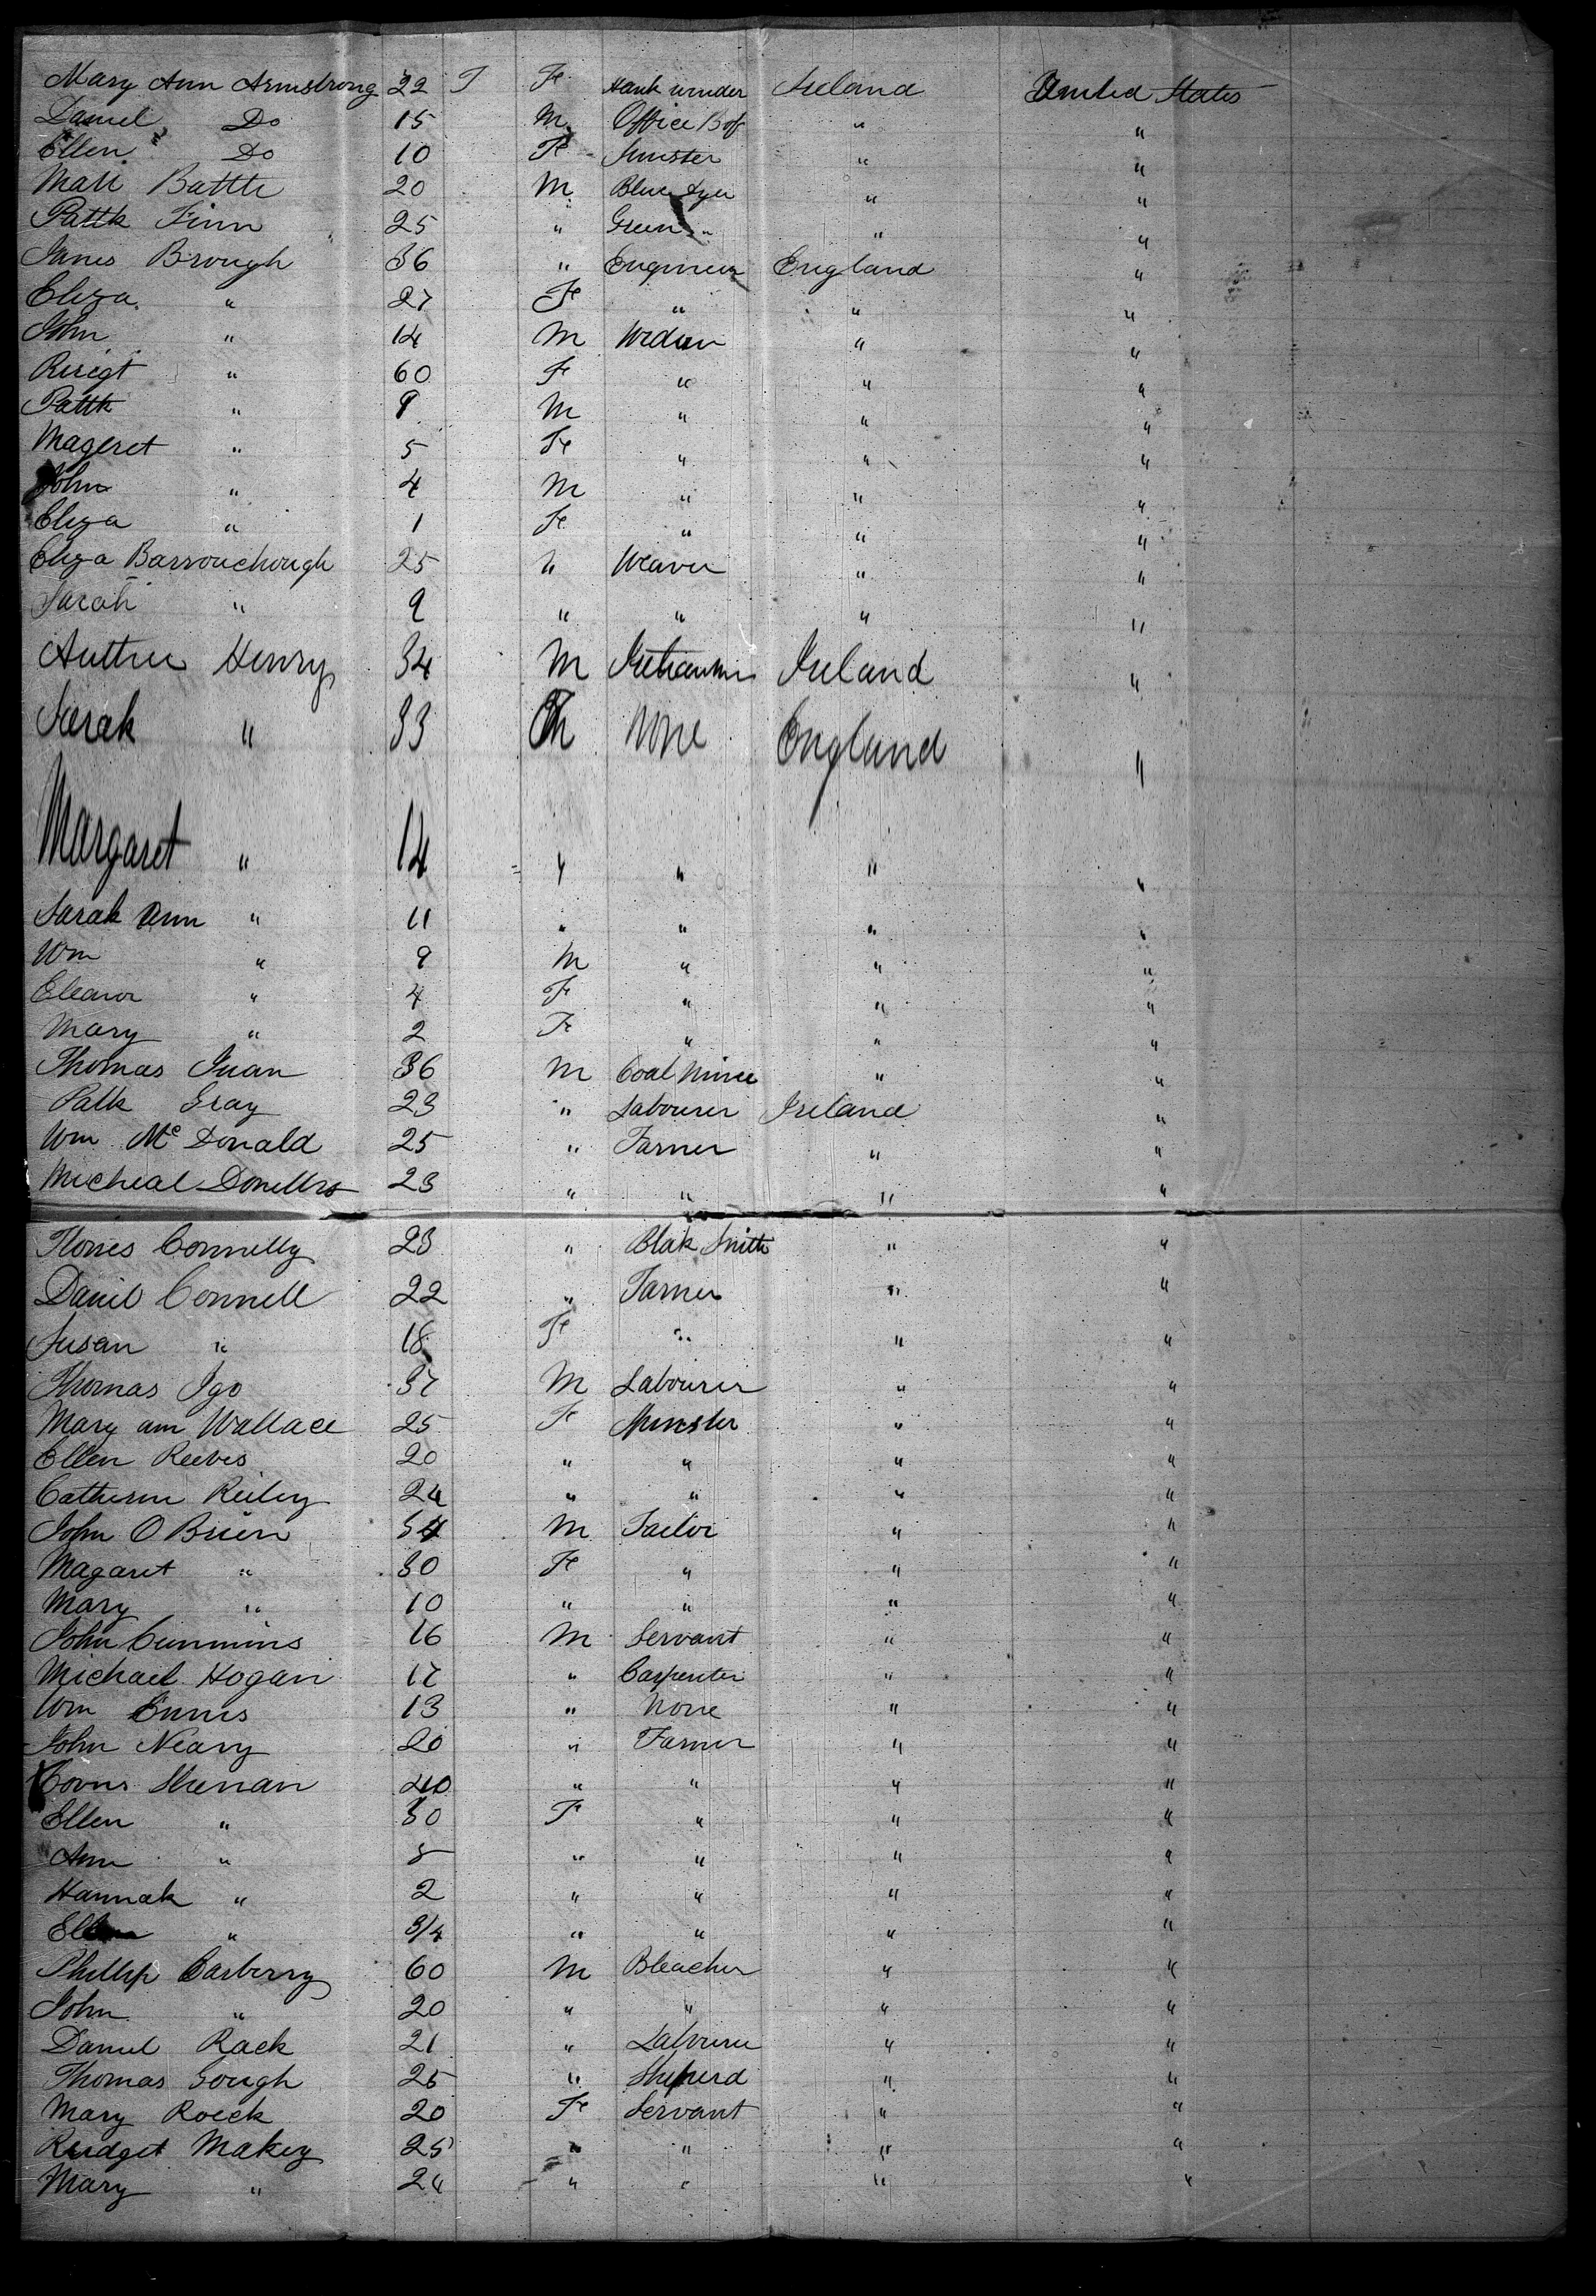 Mary Ann Armstrong 22 F Hank winder Ireland United States
Daniel Do 15 M Office Boy " "
Ellen Do 10 Fe " "
Battle 20 M Blue Dyer " "
Pattk Finn 25 " Green " " "
James Brough 36 " Engineer England "
Eliza " 27 Fe " " "
John " 14 M " "
" 60 Fe " " "
Pattk " 9 M " " "
Mageret " 5 Fe " " "
John " 4 M " " "
Eliza " 1 Fe " " "
Eliza Barrowchough 25 " Weaver " "
Sarah " 9 " " " "
Henry 34 M Ireland "
Sarah " 33 None England "
Margaret " 14 " " " "
Sarah Ann " 11 " " " "
Wm " 9 M " " "
Eleanor " 4 F " " "
Mary " 2 Fe " " "
Thomas 36 M Coal Miner " "
Patk Gray 23 " Labourer Ireland "
Wm Mc Donald 25 " Farmer " "
Micheal 23 " " " "
Connelly 23 " Blak Smith " "
Daniel Connell 22 " Farmer " "
Susan " 18 Fe " " "
Thomas Igo 37 M Labourer " "
Mary ann Wallace 25 Fe " "
Ellen Reeves 20 " " " "
Catherine Reiley 24 " " " "
John O Brien 34 M Tailor " "
Magaret " 30 Fe " " "
Mary " 10 " " " "
John Cummins 16 M Servant " "
Michael Hogan 17 " Carpenter " "
Wm Ennis 13 " None " "
John Neary 20 " Farmer " "
Shenan 40 " " " "
Ellen " 30 Fe " " "
Ann " 8 " " " "
Hannah " 2 " " " "
" 3/4 " " " "
Phillip Carberry 60 M Bleacher " "
John " 20 " " " "
Daniel Rack 21 " Labourer " "
Thomas Gough 25 " Sheperd " "
Mary Roeck 20 Fe Servant " "
Makey 25 " " " "
Mary " 24 " " " "